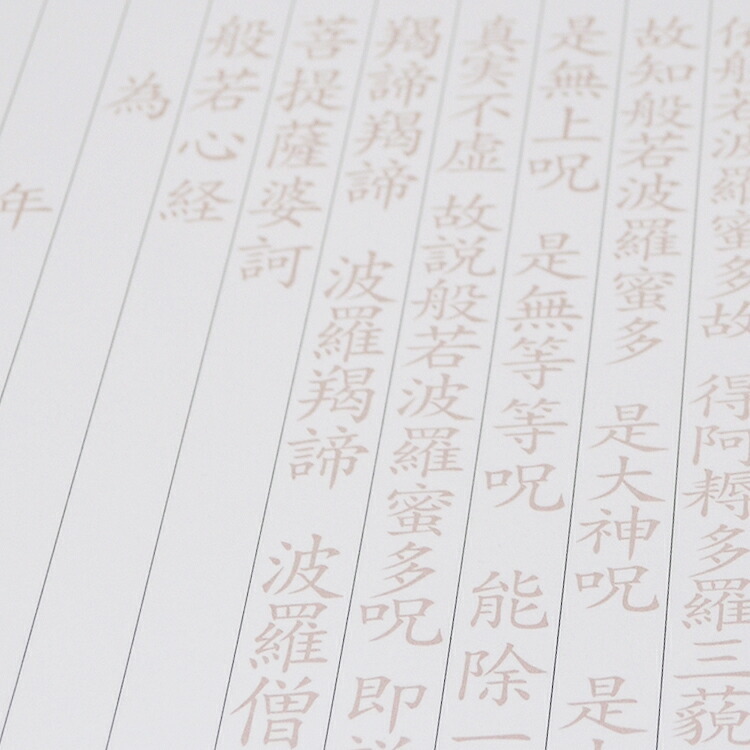 般若波羅蜜多故 得阿耨多羅三藐
故知般若波羅蜜多 是大神呪 是
是無上呪 是無等等呪 能除一
真実不虚 故説般若波羅蜜多呪 即
羯諦羯諦 波羅羯諦 波羅僧
菩提薩婆訶
般若心経
為
年